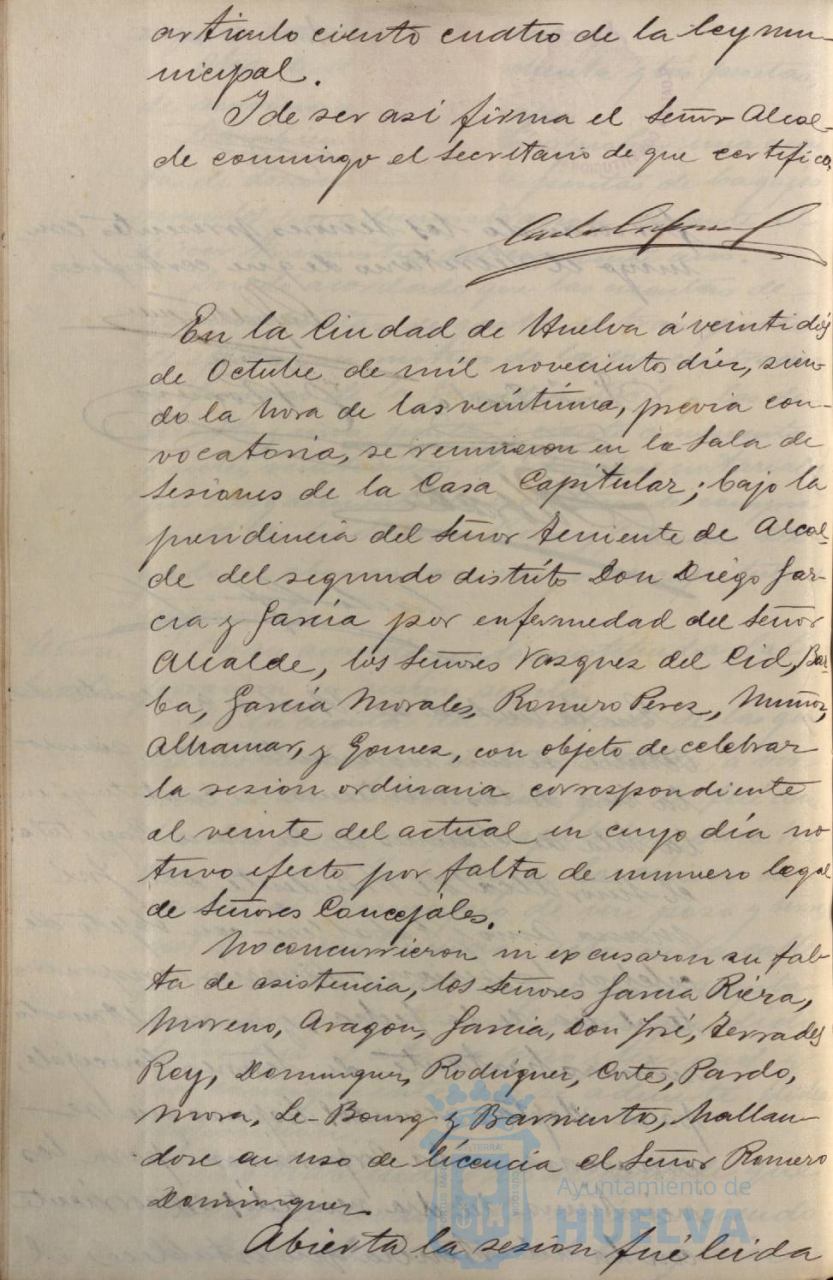 articulo ciento cuatro de la ley mu-
nicipal.
I de ser así firma el Señor Alcal-
de conmigo el Secretario de que certifico,
En la Ciudad de Huelva á veintidós
de Octubre de mil novecientos diez, sien-
do la hora de las veintiuna, previa con-
vocatoria, se reunieron en la Sala de
Sesiones de la Casa Capitular; bajo la
presidencia del Señor Teniente de Alcal-
de del segundo distrito Don Diego Gar-
cia y García por enfermedad del Señor
Alcalde, los Señores Vazquez del Cid, Bar-
ba, García Morales, Romero Perez, Muñoz,
Alhamar, y Gomez, con objeto de celebrar
la sesion ordinaria correspondiente
al veinte del actual en cuyo día no
tuvo efecto por falta de numero legal
de Señores Concejales.
No concurrieron ni excusaron su fal-
ta de asistencia, los Señores Garcia Riera,
Moreno, Aragon, Garcia, Don José, Terrades
Rey, Dominguez, Rodriguez, Corte, Pardo,
Mora, Le-Bourg y Barriento, hallan-
dose en uso de licencia el Señor Romero
Dominguez.
Abierta la sesion fué leida
Ayuntamiento de
HUELVA